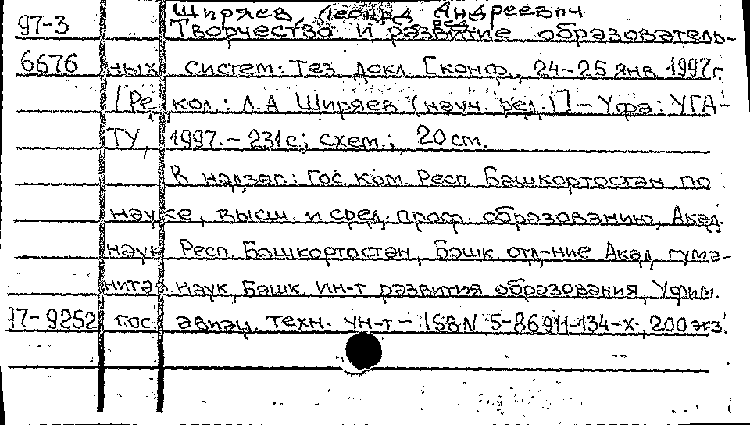 Ширяев, Леонид Андреевич
97-3 Творчество и развитие образователь-
6676 ных систем: Тез. докл. [конф., 24-25 янв. 1997г.
/ Редкол.: Л.А Ширяев (науч. ред.)] - Уфа: УГА-
ТУ, 1997. - 231с; схем.; 20 см.
В надзаг.: Гос. ком. Респ. Башкортостан по
науке, высш. и сред. проф. образованию, Акад.
наук Респ. Башкортостан, Башк. отд-ние Акад. гума-
нитар. наук, Башк. ин-т развития образования, Уфим.
17-9252 гос. авиац. техн. ун-т - ISBN 5-86911-134-X, 200 экз.